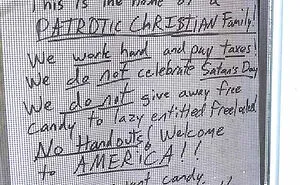 This is the home of a
PATROTIC ChRISTIAN Family!
We work hard and pay taxes!
We do not celebrate Satan's Day
We do not give away free
Candy to lazy entitled freeloaders!
No Handouts! Welcome
to AMERICA!!
want candy